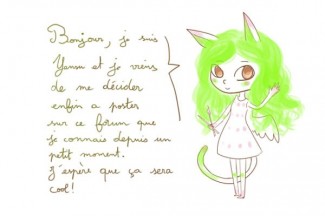 Bonjour, je suis
Yamsu et je viens
de me décider
enfin a poster
sur ce forum que
je connais depuis un
petit moment.
J'espère que ça sera
cool!